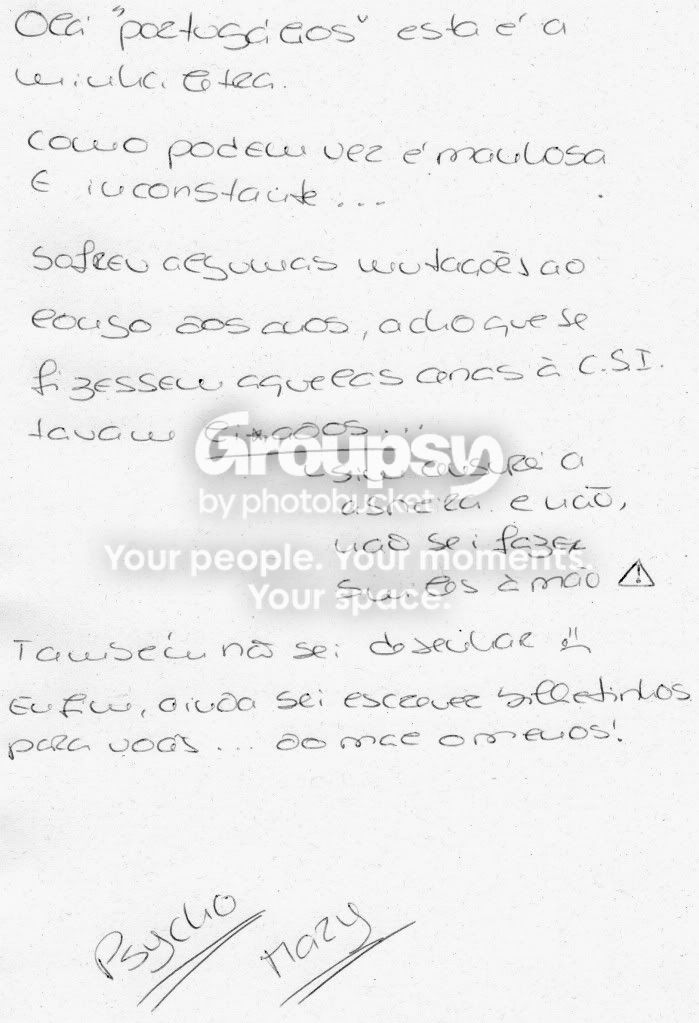 Olá "portugáLios" esta é a
minha letra.
Como podem ver é manhosa
E inconstante...
Sofreu algumas mutações ao
longo dos anos, acho que se
fizessem aquelas cenas à C.S.I.
tavam li*ados...
Groupsy
sim censurei a
by photobucket
asneira. e não,
não sei fazer
Your people. Your moments.
smiles à mão
Your space.
Também não sei desenhar
Enfim, ainda sei escrever bilhetinhos
para vocês... do mal o menos!
Psycho Mary